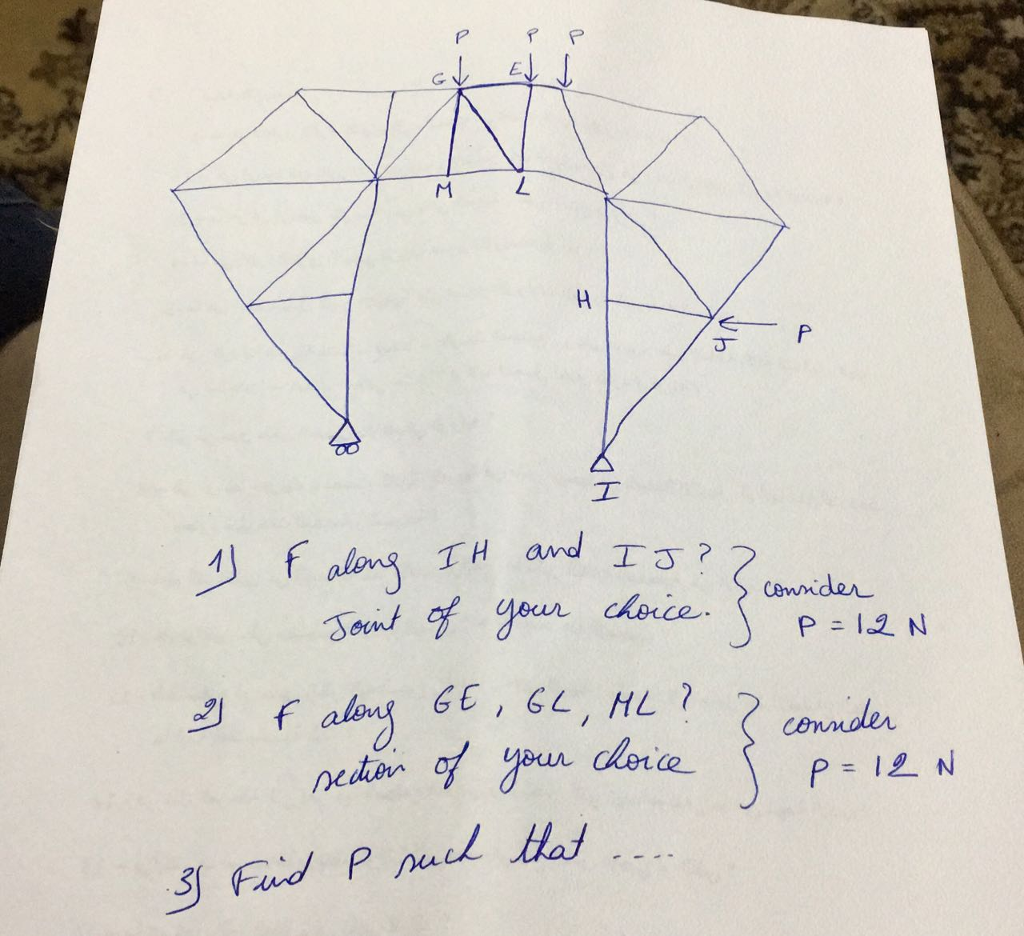 P P P
G E
M L
H
J P
I
1) F along IH and IJ? } consider
Joint of your choice. P = 12 N
2) F along GE, GL, ML? } consider
section of your choice P = 12 N
3) Find P such that ....